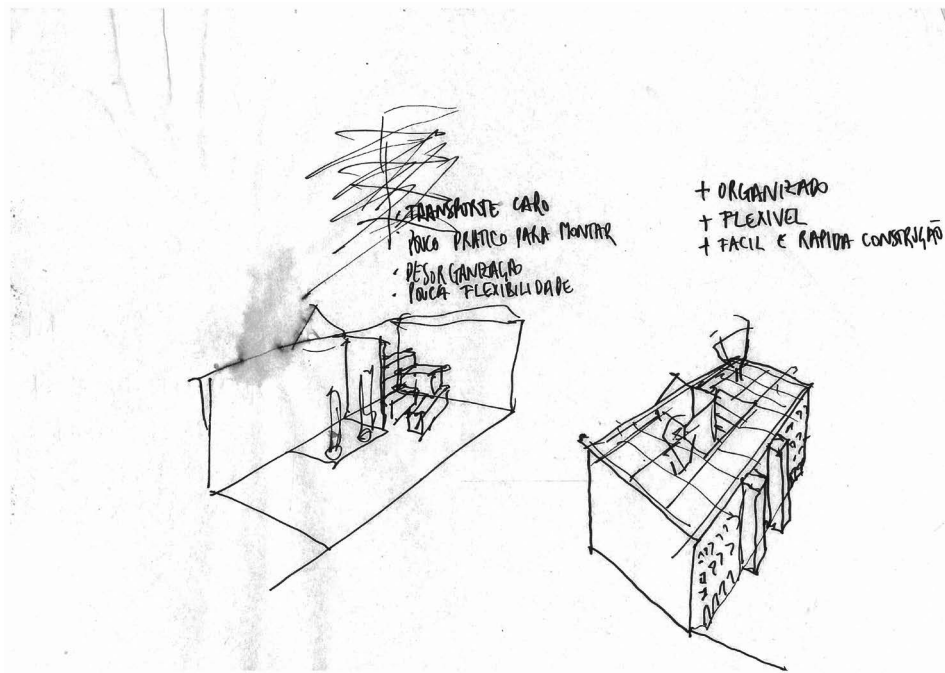 · TRANSPORTE CARO
· POUCO PRATICO PARA MONTAR
· DESORGANIZAÇÃO
· POUCA FLEXIBILIDADE
+ ORGANIZADO
+ FLEXIVEL
+ FACIL E RAPIDA CONSTRUÇÃO